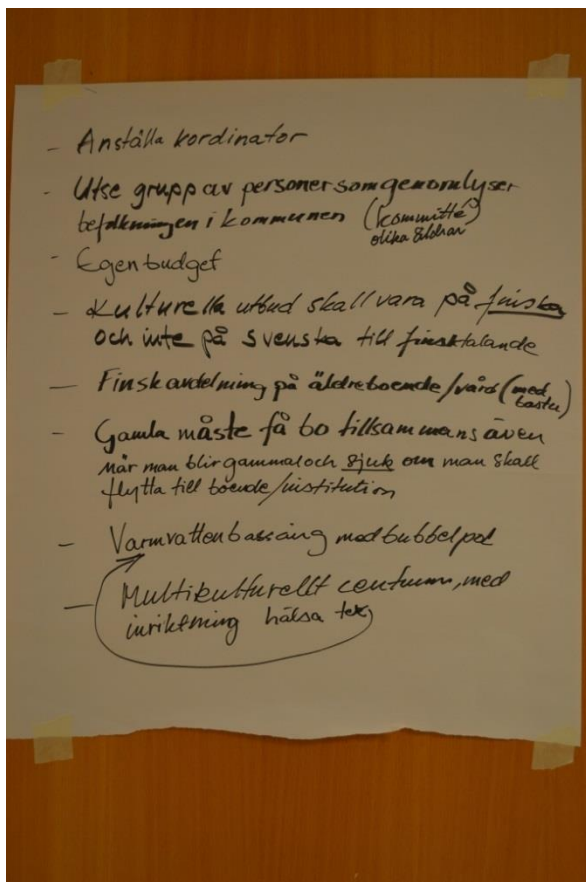 - Anställa kordinator
- Utse grupp av personer som genomlyser
befolkningen i kommunen (kommitté)
olika åldrar
- Egen budget
- Kulturella utbud skall vara på finska
och inte på svenska till finsktalande
- Finsk avdelning på äldreboende/vård (med
bastu)
- Gamla måste få bo tillsammans även
när man blir gammal och sjuk om man skall
flytta till boende/institution
- Varmvattenbassäng med bubbelpool
- Multikulturellt centrum, med
inriktning hälsa tex